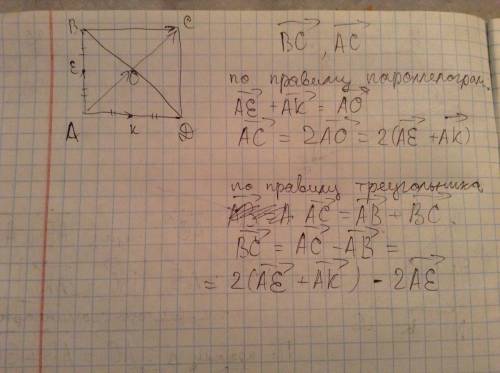 B C
E O
A K D
BC, AC
по правилу параллелограм.
AE + AK = AO
AC = 2AO = 2(AE + AK)
по правилу треугольника
AC = AB + BC
BC = AC - AB =
= 2(AE + AK) - 2AE